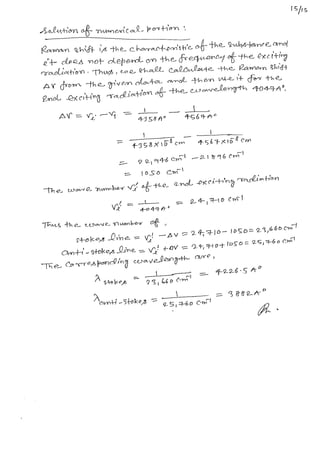 15/15
Solution of numerical portion :
Raman shift is the characteristic of the substance and
it does not depend on the frequency of the exciting
radiation. Thus, we shall calculate the Raman shift
Δν from the given data and then use it for the
2nd exciting radiation of the wavelength 4047A°.
Δν = νi - νj = 1/4358A° - 1/4564A°
= 1/4358×10⁻⁸ cm - 1/4567×10⁻⁸ cm
= 22,946 cm⁻¹ - 21896 cm⁻¹
= 1050 cm⁻¹
The wave number νi' of the 2nd exciting radiation
νi' = 1/4047A° = 24,710 cm⁻¹
Thus the wave number of
Stokes line = νi' - Δν = 24,710 - 1050 = 23,660 cm⁻¹
Anti-stokes line = νi' + Δν = 24,710 + 1050 = 25,760 cm⁻¹
The corresponding wavelength are,
λ stokes = 1/23,660 cm⁻¹ = 4226.5 A°
λ anti-stokes = 1/25,760 cm⁻¹ = 3882 A°